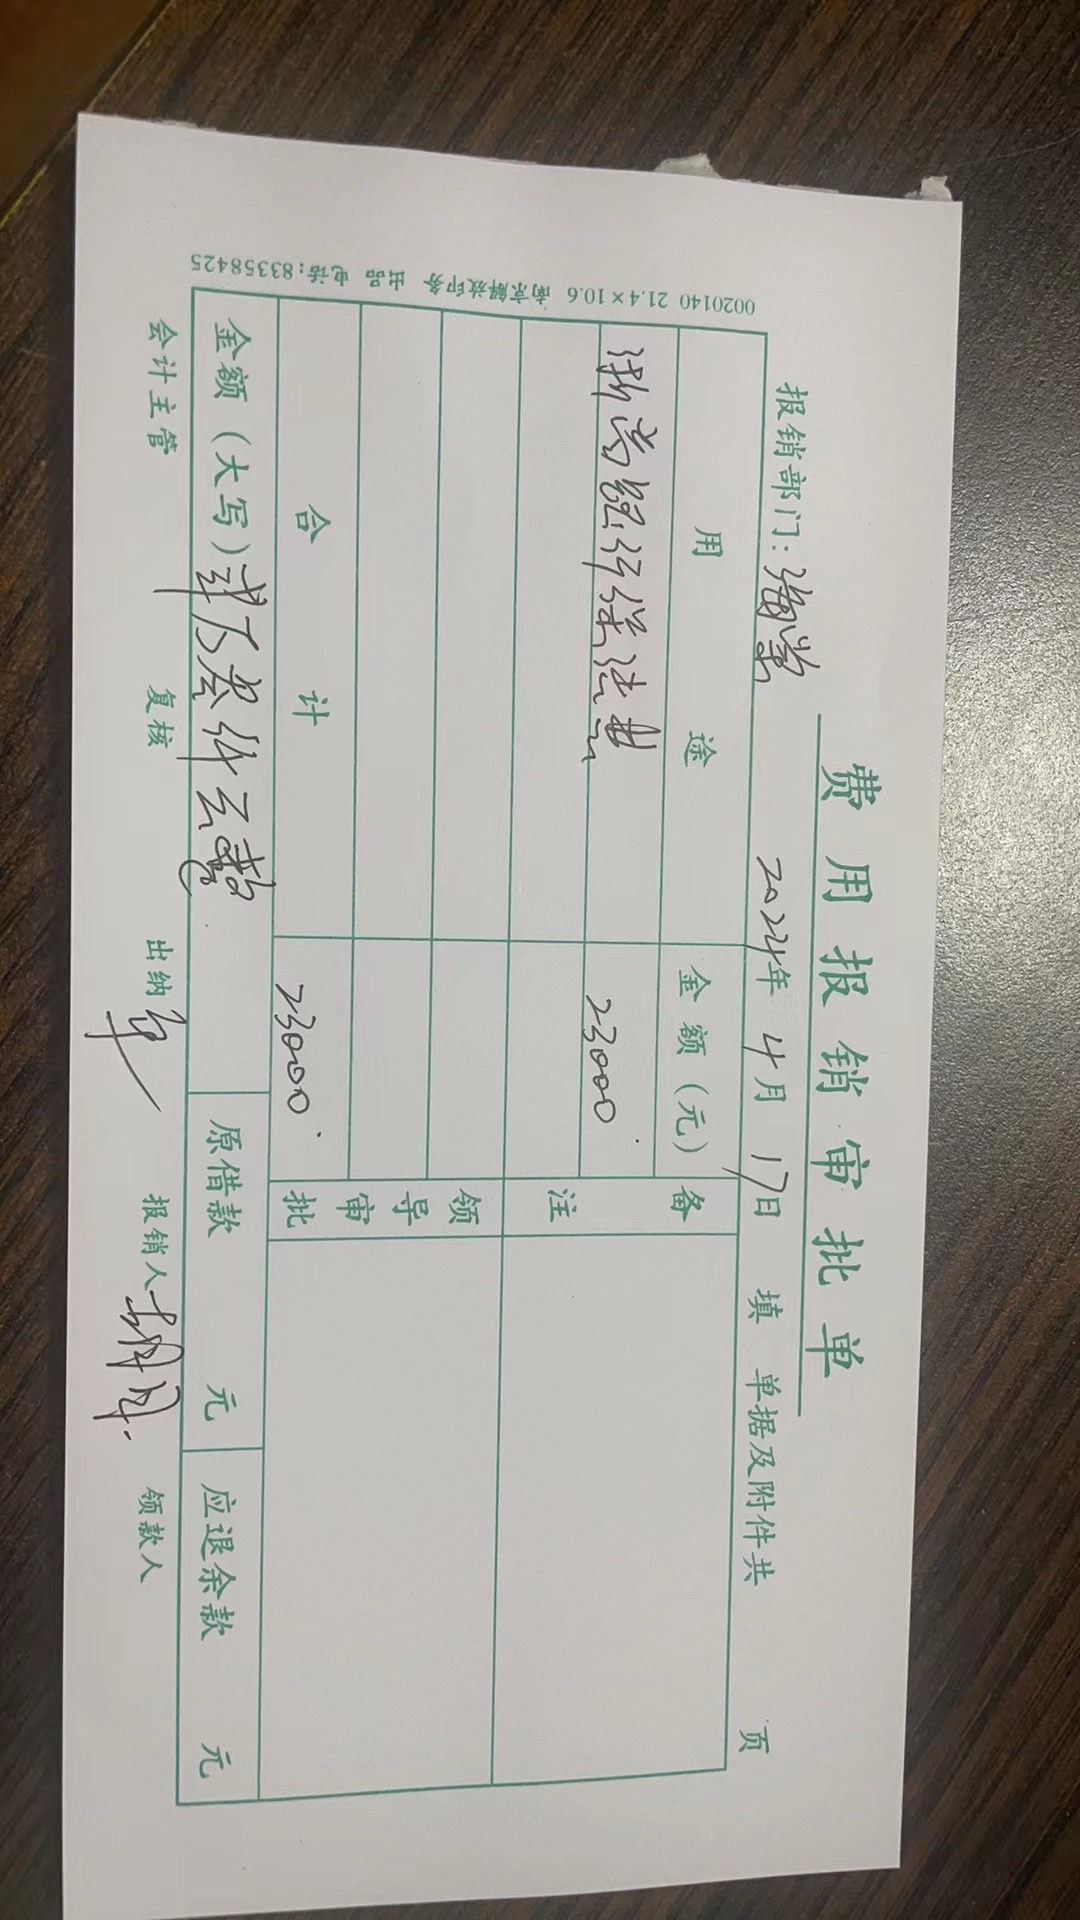 费用报销审批单
报销部门: 2024年 4月 17日 填 单据及附件共 页
用途 金额(元) 备注
浙商银行保证 23000
领导审批
合计 23000
金额(大写)贰万叁仟元整 原借款 元 应退余款 元
会计主管 复核 出纳 报销人 领款人
0020140 21.4×10.6 南京解放印务 出品 电话:83358425